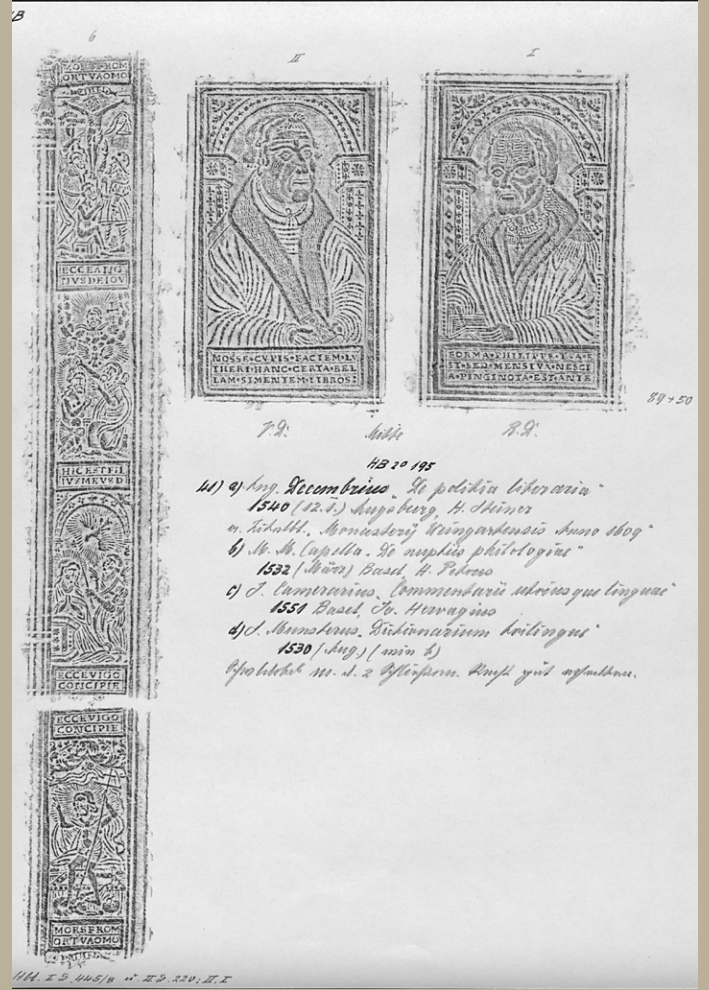 HB
6
II
I
MORS FROM
ORTVAOMO
ECCE ANG
NVS DEI OV
HIC EST FIL
IVS MEVS D
ECCE VIGO
CONCIPIE
ECCE VIGO
CONCIPIE
MORS FROM
ORTVAOMO
NOSSE·CVPIS·FACIEM·LV
THERI·HANC·CERTA·BEL
LAM·SI·MENTEM·LIBROS·
FORMA·PHILIPPI·ISTA·E
ST·SED·MENS·IVA·NESCI
A·PINGI·NOTA·EST·ANTE
89 × 50
V. D.
Mitte
R. D.
HB 2° 195
41) a) Ang. Decembrius „De politia literaria"
1540 (12.8.) Augsburg, H. Steiner
a. Titelbl. „Monasterij Weingartensis Anno 1609"
b) M. M. Capella „De nuptiis philologiae"
1532 (März) Basel, H. Petrus
c) J. Camerarius „Commentarii utriusque linguae"
1551 Basel, Jo. Hervagius
d) S. Munsterus „Dictionarium trilingue"
1530 (Aug.) (wie b)
m. d. 2 gut erhalten.
Hbl. I S. 445/8 u. II S. 220; II. I